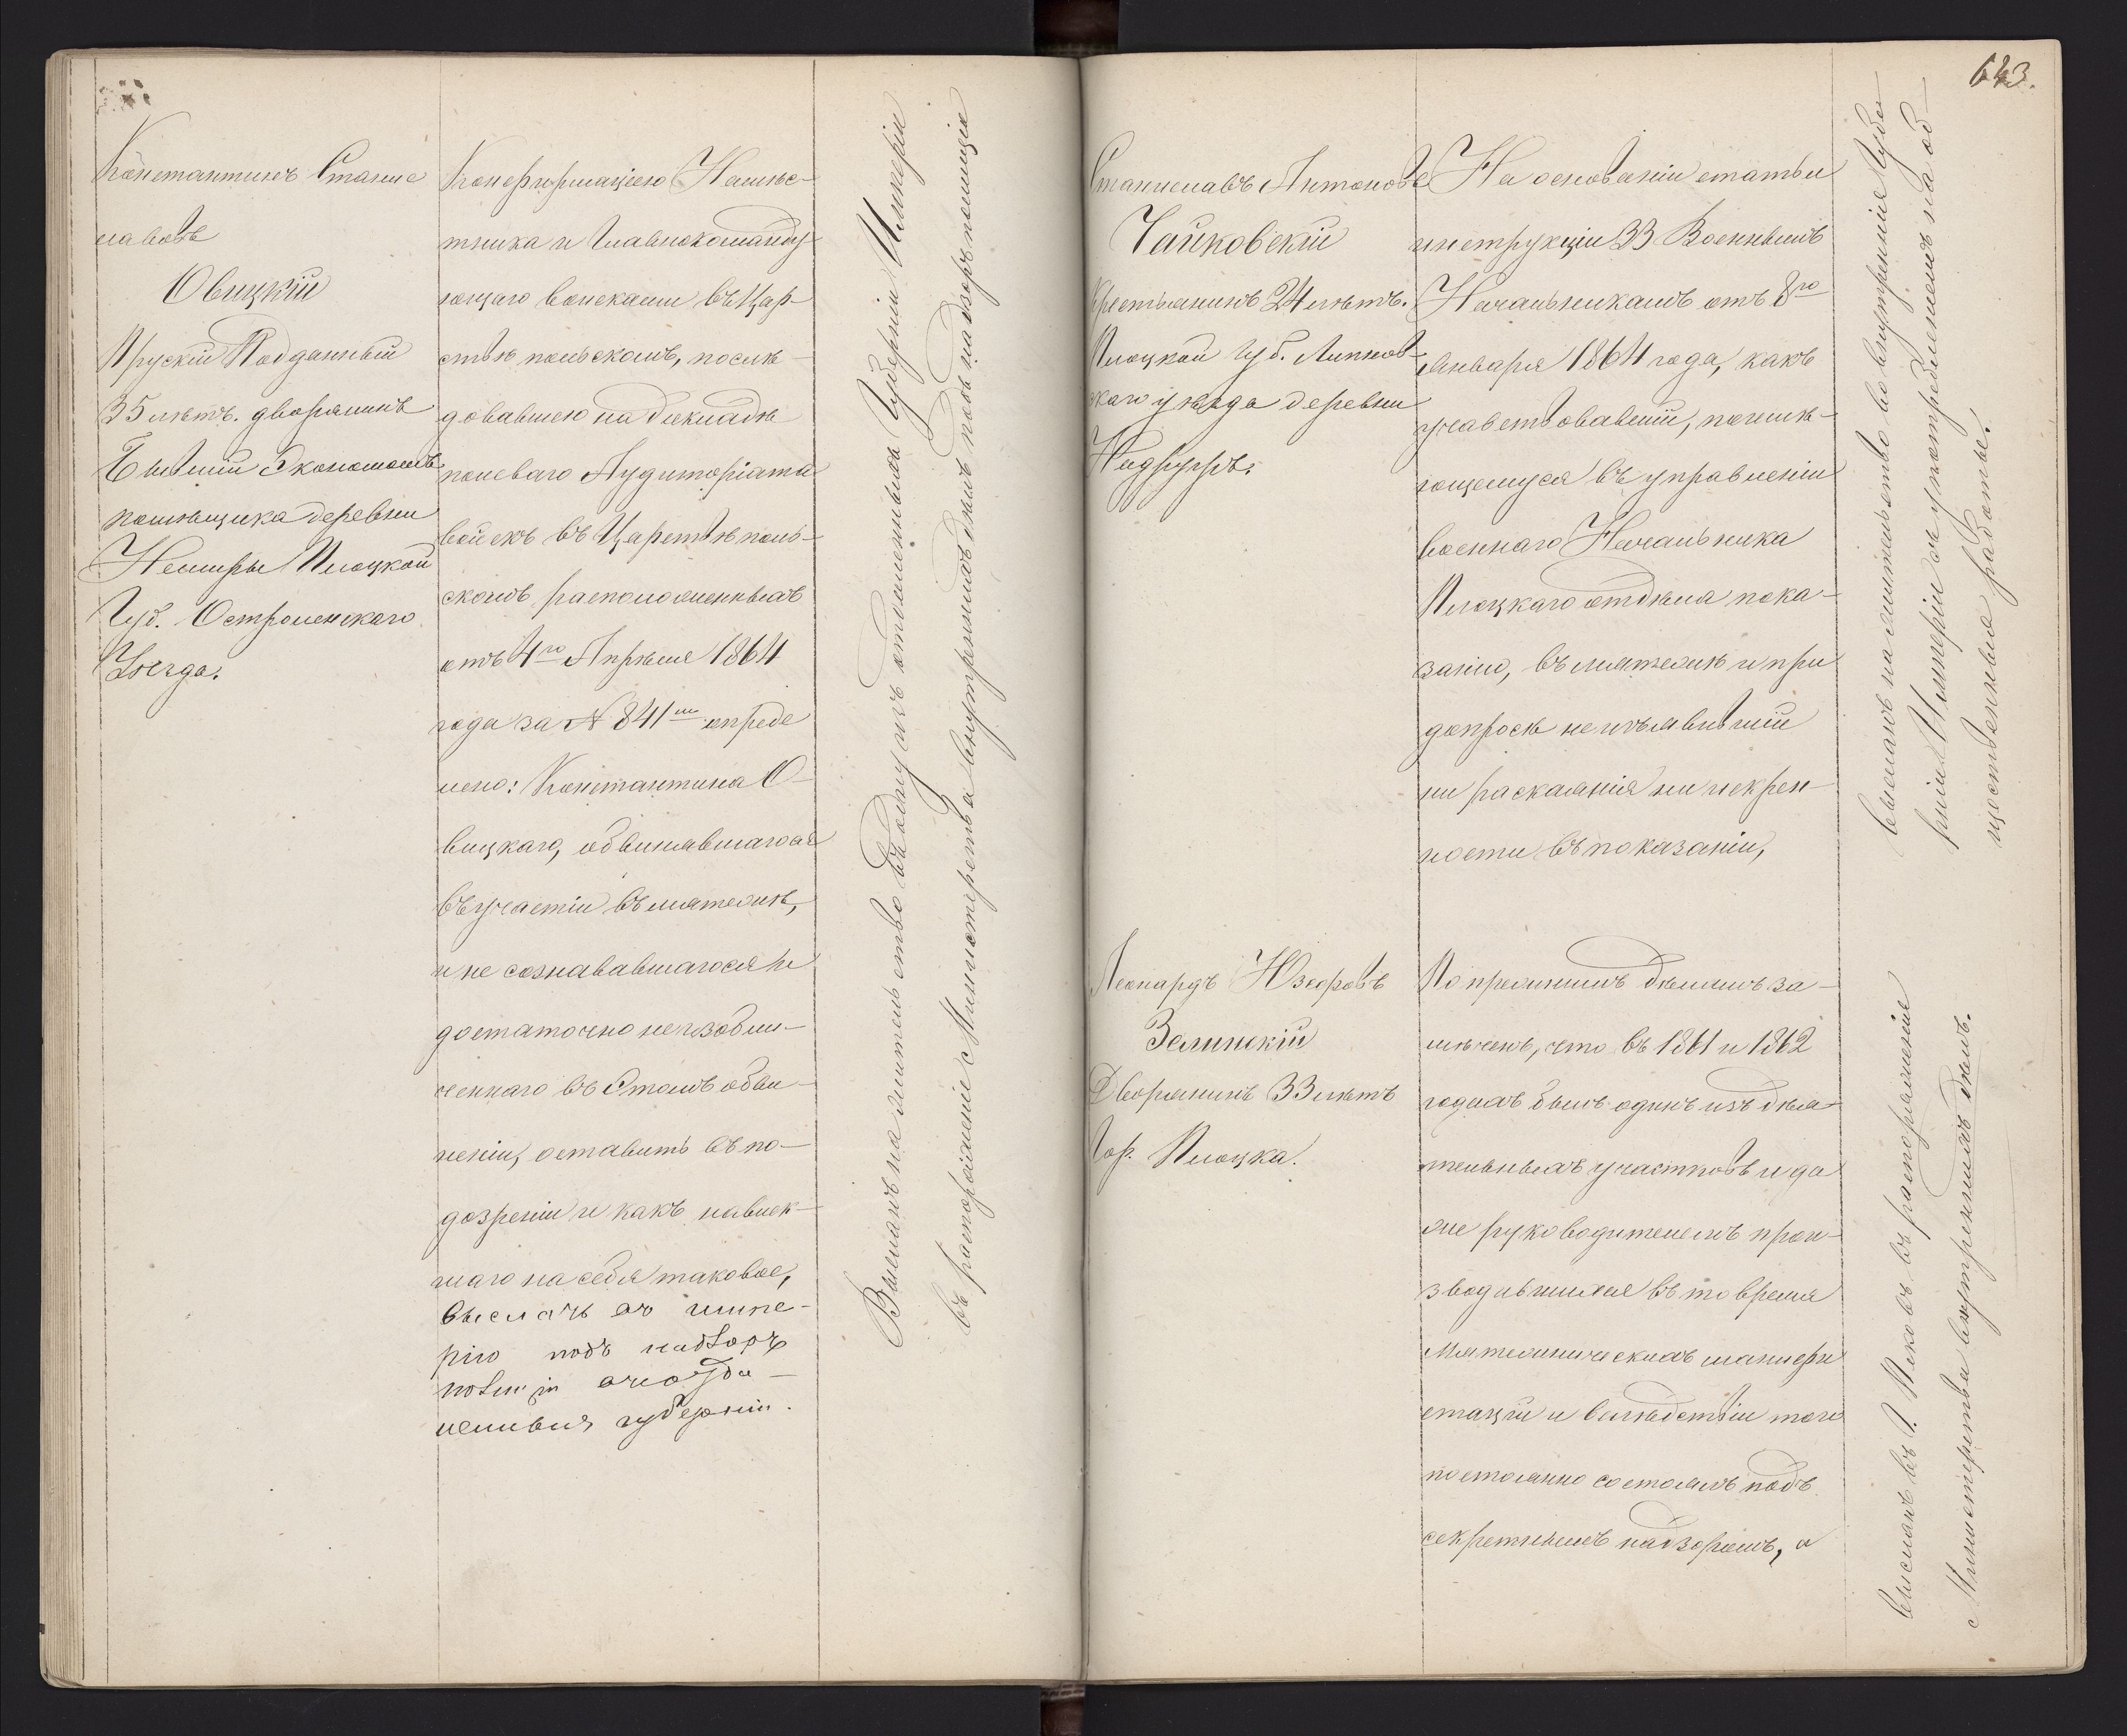 Константинъ Станис
лавовъ
Овицкій
Прускій Подданный
35 лѣтъ. дворянинъ
Бывшій Экономомъ
помѣщика деревни
Немиры Плоцкой
Губ. Остроленскаго
Уѣзда.
Конфирмаціею Намѣс-
тника и Главнокоманду
ющаго войсками въ Цар-
ствѣ польскомъ, послѣ-
довавшею на докладѣ
полеваго Аудиторіата
войскъ въ Царствѣ поль-
скомъ расположенныхъ
отъ 4го Апрѣля 1864
года за № 841мъ опреде
лено: Константина О-
вицкаго, обвинявшагося
въ участіи въ мятежѣ,
и не сознававшагося и
достаточно неизобли-
ченнаго въ Этомъ обви-
неніи, оставить въ по-
дозреніи и какъ навлек-
шаго на себя таковое,
выслать въ импе-
рію подъ надзоръ
полиціи въ отда-
ленныя губерніи.
Высланъ на жительство въ одну изъ отдаленныхъ Губерній Имперіи
въ распоряженіе Министерства внутреннихъ дѣлъ подъ надзоръ полиціи
643.
Станиславъ Антоновъ
Чайковскій
Крестьянинъ 24 лѣтъ.
Плоцкой Губ. Липнов-
скаго уѣзда деревни
На основаніи статьи
инструкціи 33 Военнымъ
Начальникамъ отъ 8го
Января 1864 года, какъ
учавствовавшій, по имѣ-
ющемуся въ управленіи
военнаго Начальника
Плоцкаго отдѣла пока-
занію, въ мятежѣ и при
допросѣ не изъявившій
ни раскаянія ни искрен-
ности въ показаніи,
высланъ на жительство во внутреннія Губе-
рніи Имперіи съ употребленіемъ на об-
щественныя работы.
Леонардъ Юзефовъ
Зелинскій
Дворянинъ 33 лѣтъ
Гор. Плоцка.
По прежнимъ дѣламъ за-
мѣченъ, что въ 1861 и 1862
годахъ былъ одинъ изъ дѣя-
тельныхъ участниковъ и да
же руководителемъ прои-
зводившихся въ то время
мятежническихъ манифе
стацій и вслѣдствіи того
постоянно состоялъ подъ
секретнымъ надзоромъ, а
высланъ въ Г. Псковъ въ распоряженіе
Министерства внутреннихъ дѣлъ.